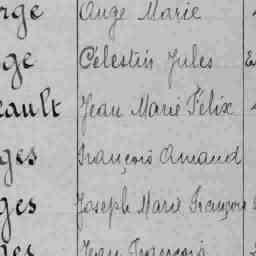 rge Ange Marie
ge Célestin Jules
eault Jean Marie Félix
ges François Amand
ges Joseph Marie François
ges Jean François